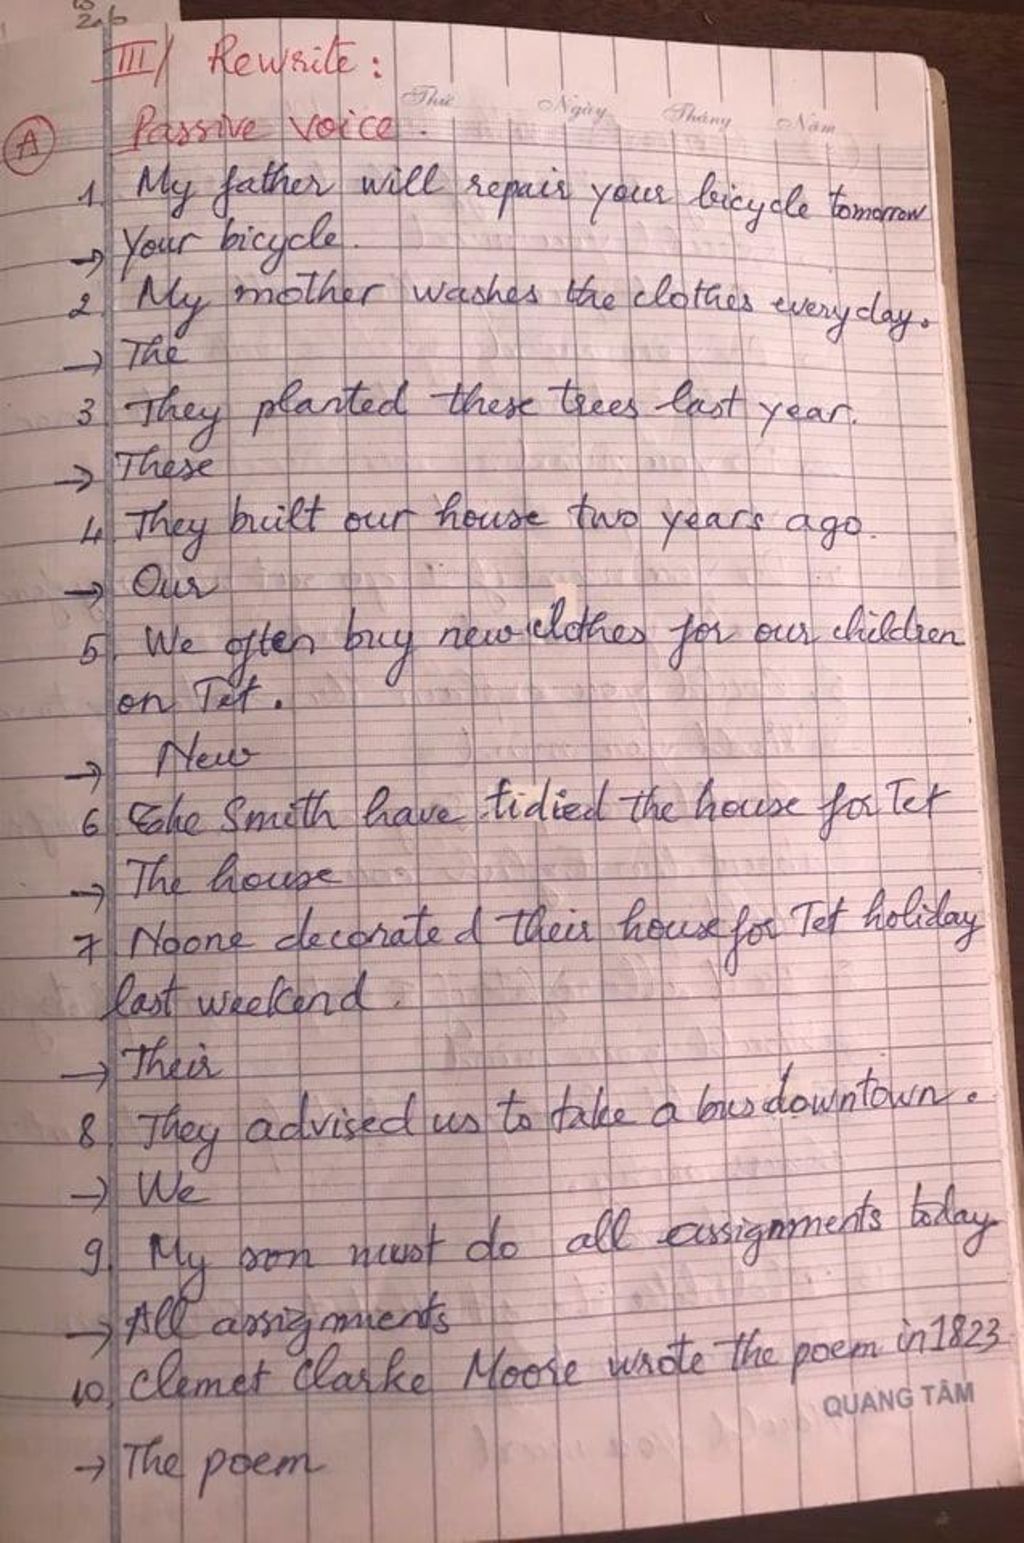 III/ Rewrite:
Thứ Ngày Tháng Năm
A Passive voice.
1. My father will repair your bicycle tomorrow
→ Your bicycle.
2. My mother washes the clothes everyday.
→ The
3 They planted these trees last year.
→ These
4. They built our house two years ago.
→ Our
5. We often buy new clothes for our children
on Tet.
→ New
6 The Smith have tidied the house for Tet
→ The house
7. Noone decorated their house for Tet holiday
last weekend.
→ Their
8. They advised us to take a bus downtown.
→ We
9. My son must do all assignments today
→ All assignments
10. Clemet Clarke Moore wrote the poem in 1823
QUANG TÂM
→ The poem